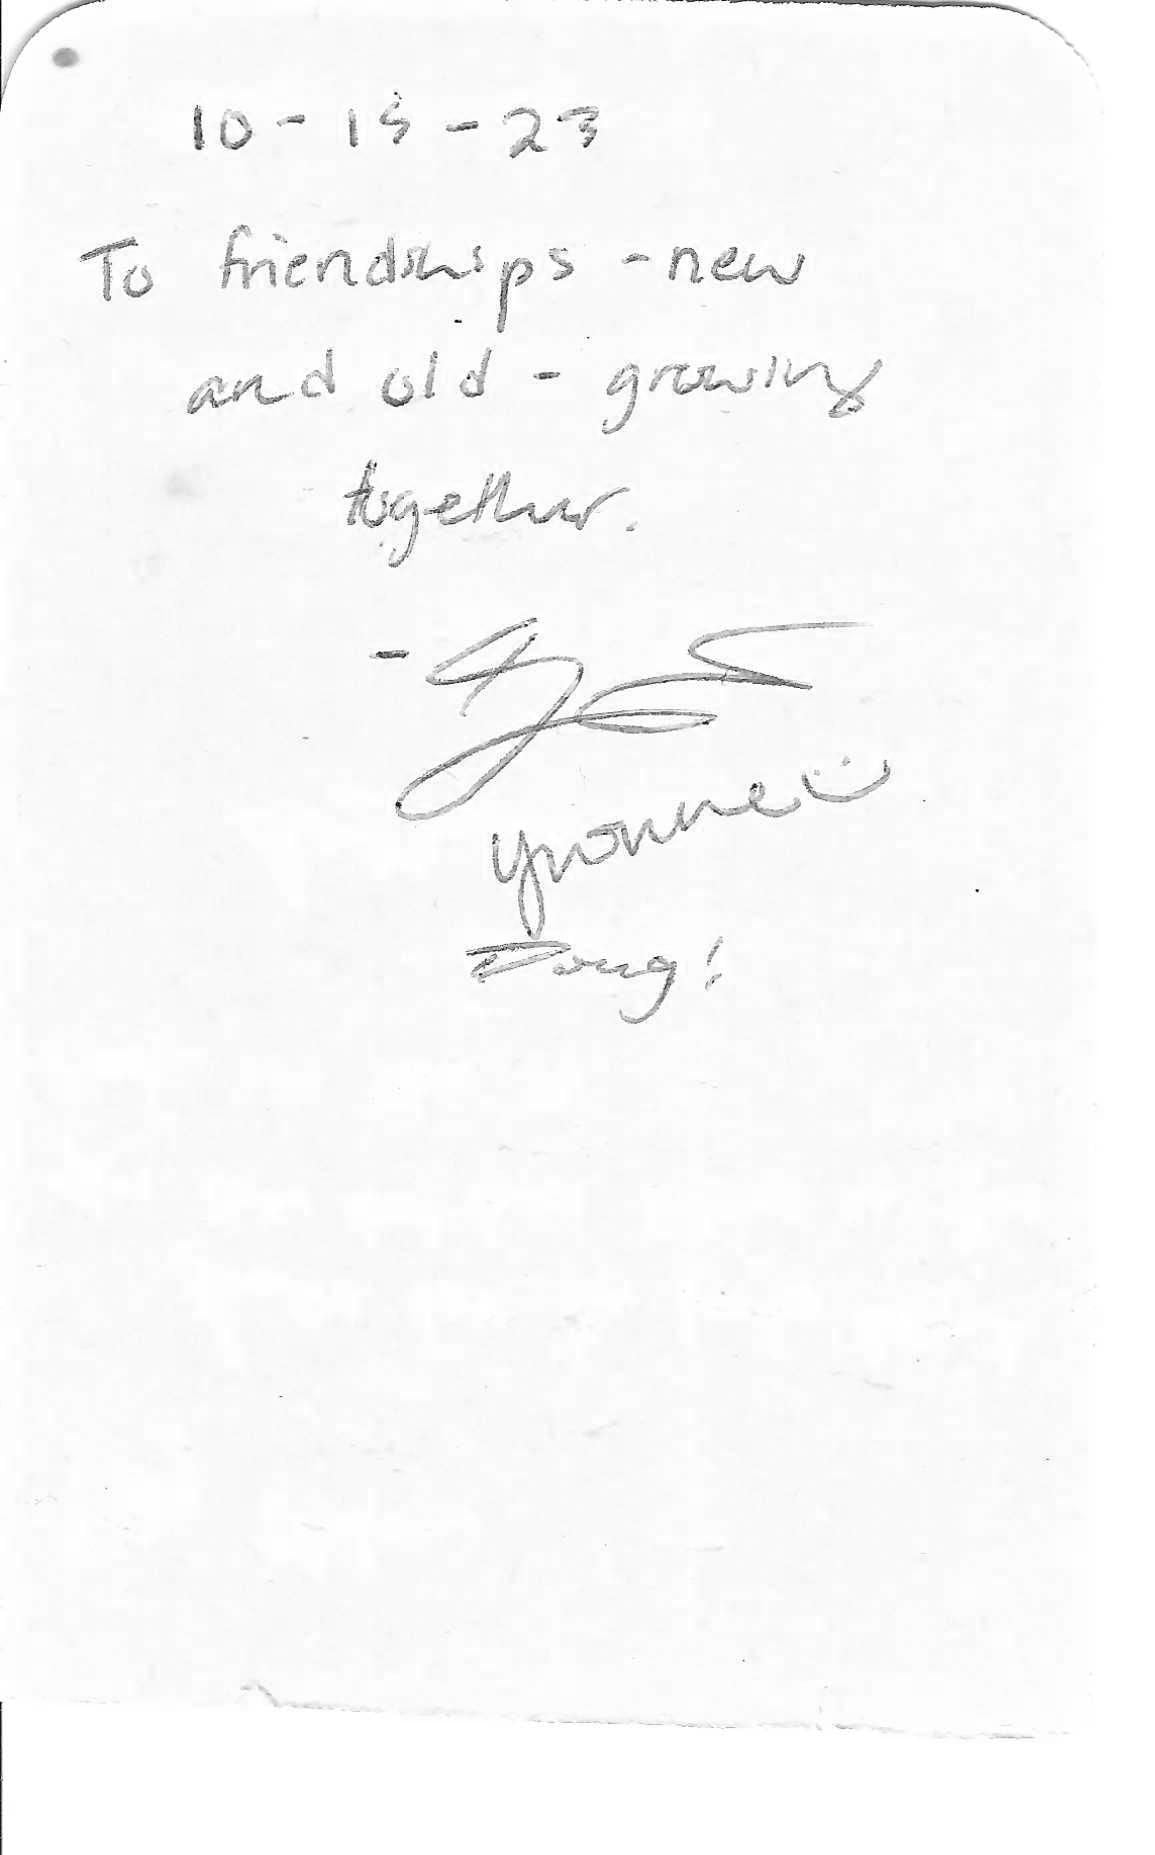 10-15-23
To friendships - new
and old - growing
together.
-
Yvonne
Doug!